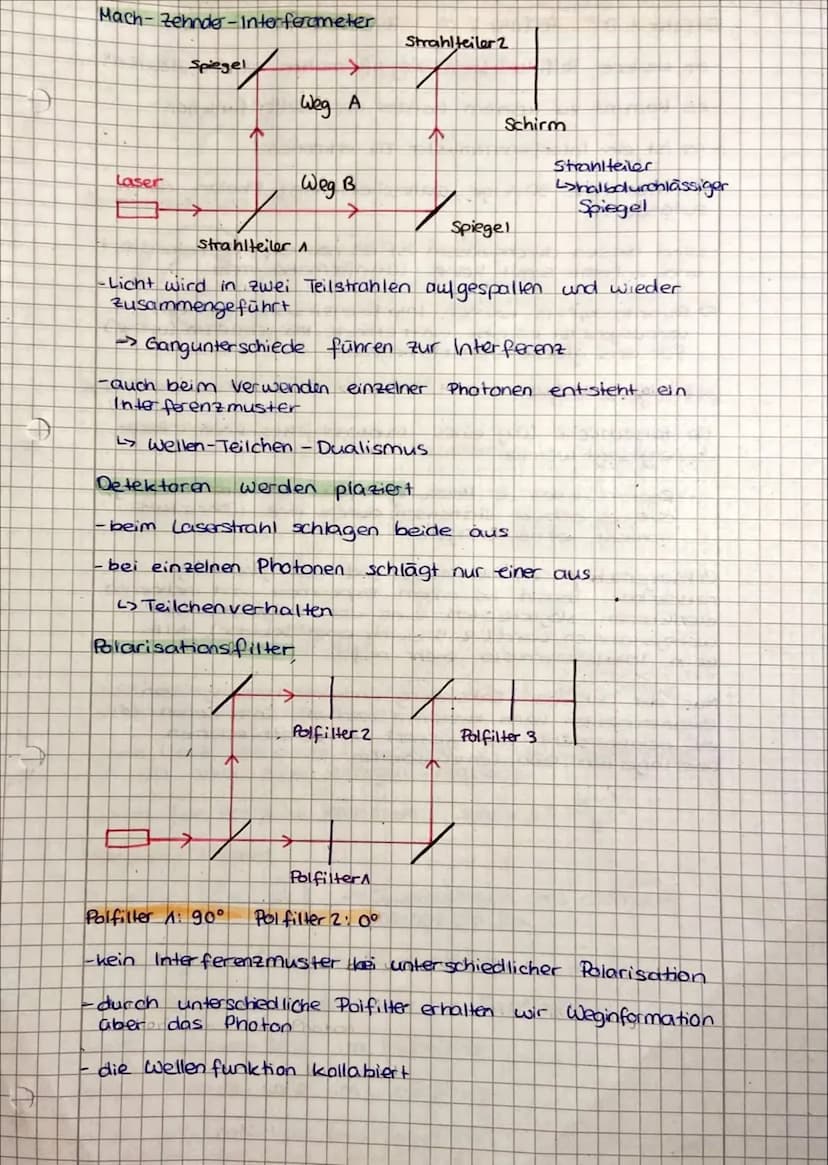 Mach-Zehnder-Interferometer
Strahlteiler 2
Spiegel
Weg A
Schirm
Laser
Weg B
Strahlteiler
↳halbdurchlässiger
Spiegel
Spiegel
Strahlteiler 1
-Licht wird in zwei Teilstrahlen aufgespalten und wieder
zusammengeführt
-> Gangunterschiede führen zur Interferenz
-auch beim Verwenden einzelner Photonen entsteht ein
Interferenzmuster
↳ Wellen-Teilchen-Dualismus
Detektoren werden plaziert
-beim Laserstrahl schlagen beide aus
-bei einzelnen Photonen schlägt nur einer aus
↳ Teilchenverhalten
Polarisationsfilter
Polfilter 2
Polfilter 3
Polfilter 1
Polfilter 1: 90° Polfilter 2: 0°
-kein Interferenzmuster bei unterschiedlicher Polarisation
-durch unterschiedliche Polfilter erhalten wir Weginformation
über das Photon
- die Wellenfunktion kollabiert